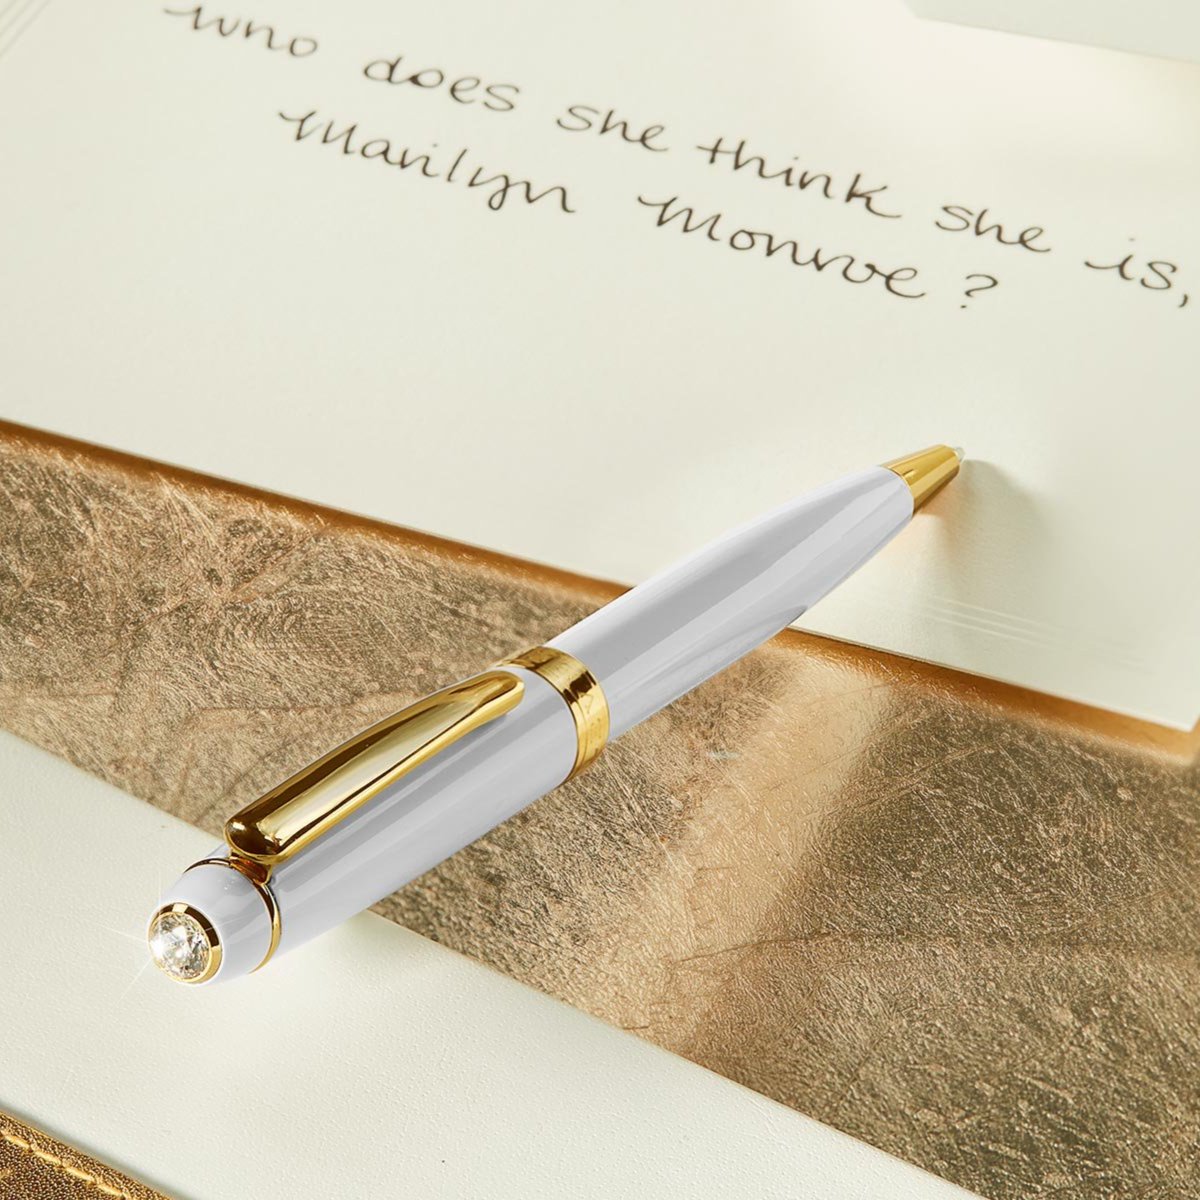 who does she think she is,
Marilyn Monroe?